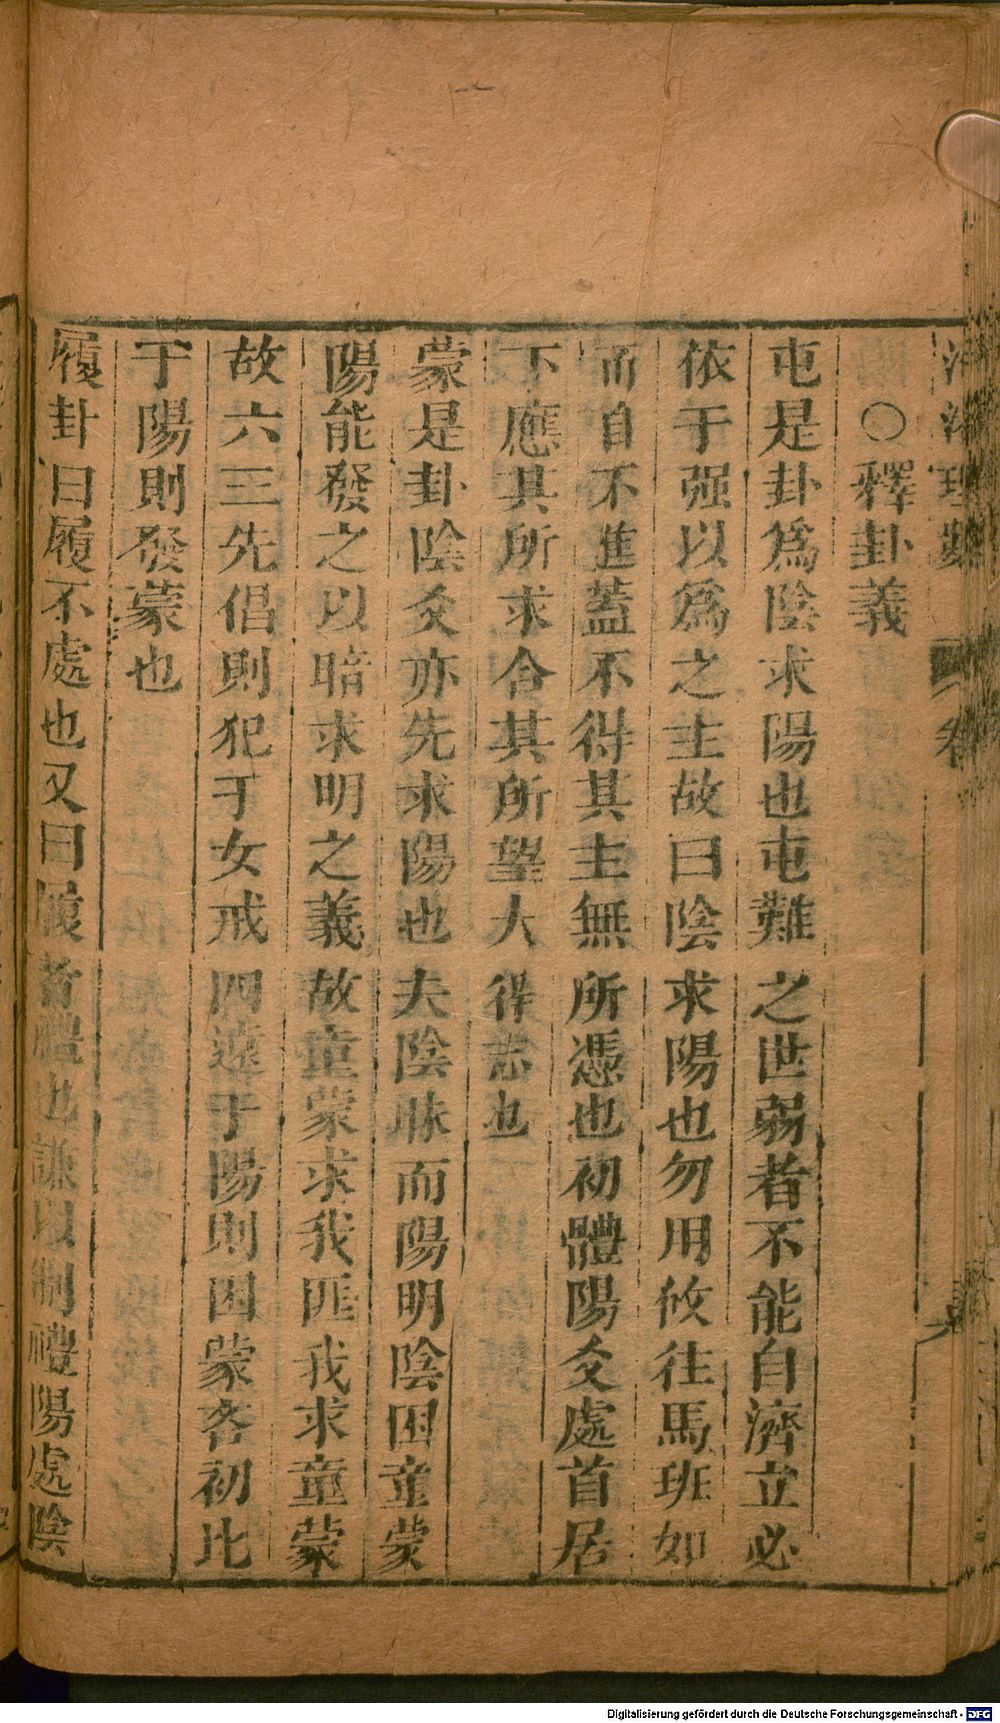 河洛理數
卷
○釋卦義
屯是卦爲陰求陽也屯難之世弱者不能自濟立必
依于强以爲之主故曰陰求陽也勿用攸往馬班如
而自不進蓋不得其主無所憑也初體陽爻處首居
下應其所求合其所望大得志也
蒙是卦陰爻亦先求陽也夫陰昧而陽明陰困童蒙
陽能發之以暗求明之義故童蒙求我匪我求童蒙
故六三先倡則犯于女戒四遠于陽則困蒙吝初比
于陽則發蒙也
履卦曰履不處也又曰履者禮也謙以制禮陽處陰
Digitalisierung gefördert durch die Deutsche Forschungsgemeinschaft - DFG